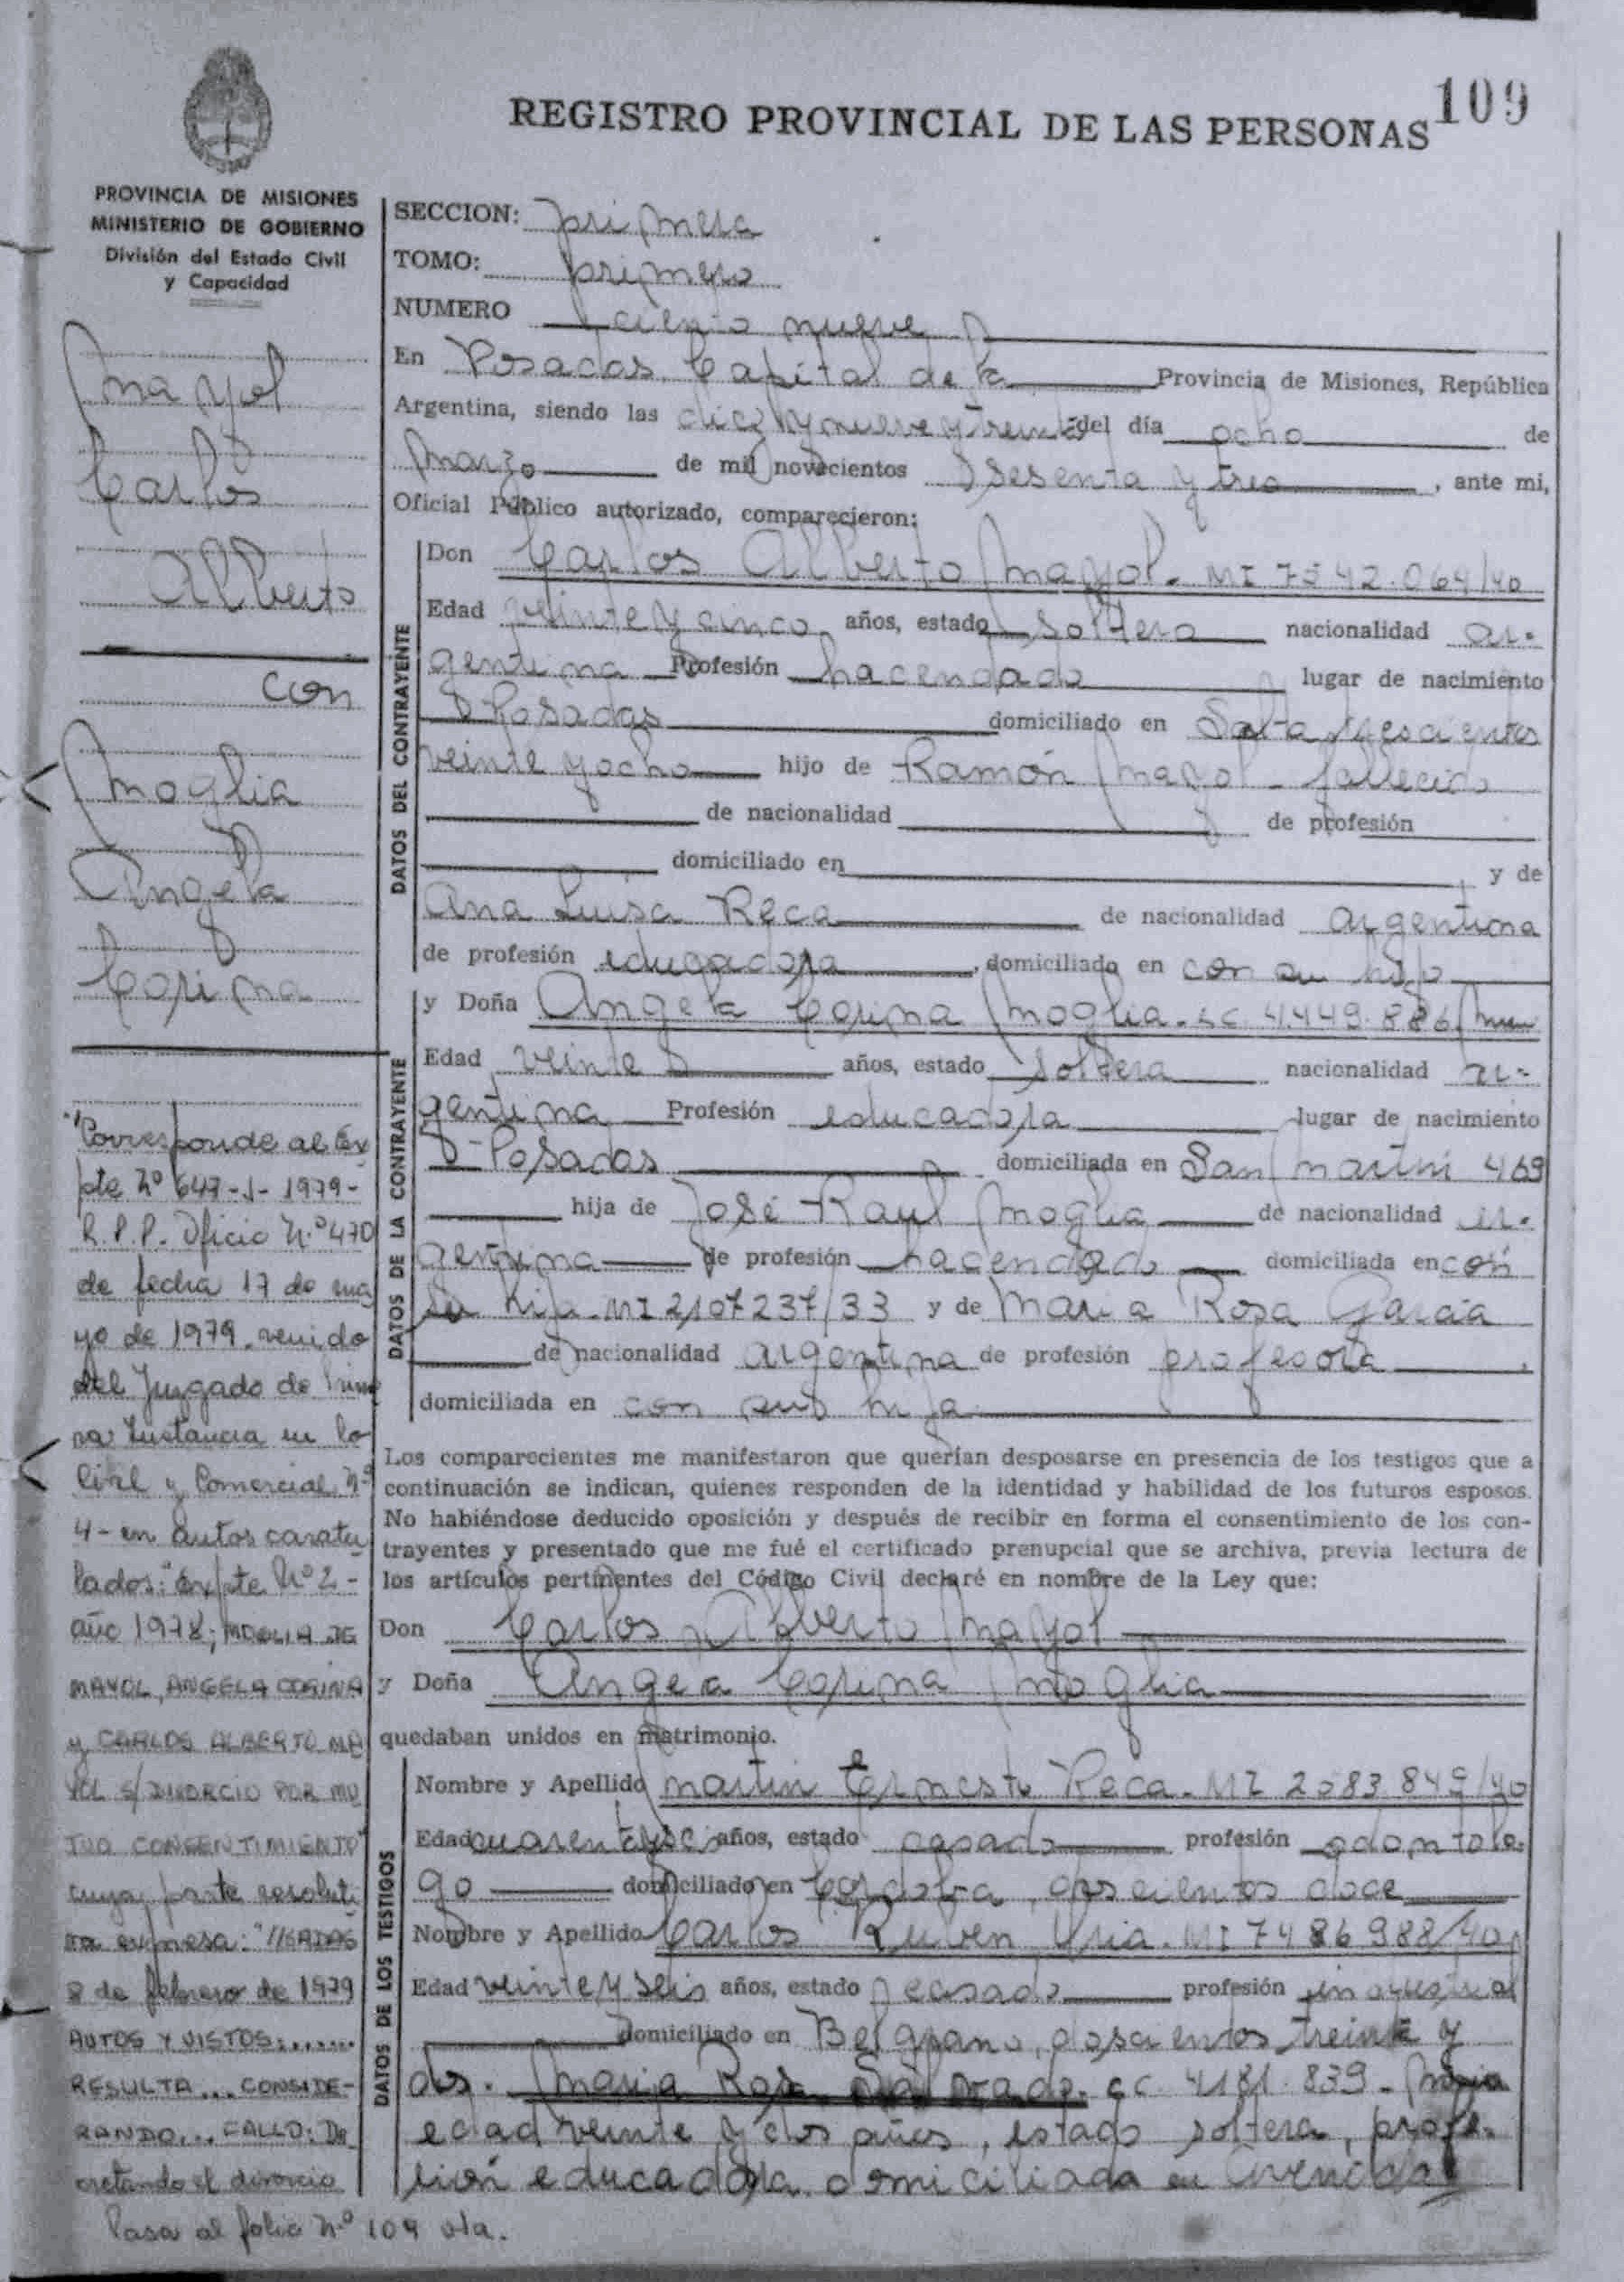 109
REGISTRO PROVINCIAL DE LAS PERSONAS
PROVINCIA DE MISIONES
MINISTERIO DE GOBIERNO
División del Estado Civil
y Capacidad
Mayol
Carlos
Alberto
con
Moglia
Angela
Corina
"Corresponde al Ex
pte Nº 647-J-1979-
R.P.P. Oficio N.º 470
de fecha 17 de ma
yo de 1979. venido
del Juzgado de Prime
ra Instancia en lo
Civil y Comercial Nº
4 - en autos caratu
lados: "Expte Nº 2 -
año 1978; MOGLIA DE
MAYOL, ANGELA CORINA
y CARLOS ALBERTO MA
YOL S/ DIVORCIO POR MU
TUO CONSENTIMIENTO"
cuya parte resoluti
va expresa: "///SADAS
8 de febrero de 1979
AUTOS Y VISTOS:......
RESULTA... CONSIDE-
RANDO... FALLO: De
cretando el divorcio
Pasa al folio Nº 109 vta.
SECCION: primera
TOMO: primero
NUMERO ciento nueve
En Posadas Capital de la Provincia de Misiones, República
Argentina, siendo las diez y nueve y treinta del día ocho de
Marzo de mil novecientos sesenta y tres, ante mi,
Oficial Público autorizado, comparecieron:
DATOS DEL CONTRAYENTE
Don Carlos Alberto Mayol. MI 7542.064/40
Edad veinte y cinco años, estado soltero nacionalidad ar-
gentina Profesión hacendado lugar de nacimiento
Posadas domiciliado en Salta trescientos
veinte y ocho hijo de Ramón Mayol - fallecido
de nacionalidad de profesión
domiciliado en y de
Ana Luisa Reca de nacionalidad argentina
de profesión educadora, domiciliado en con su hijo
DATOS DE LA CONTRAYENTE
y Doña Angela Corina Moglia. LC 4.449.886
Edad veinte años, estado soltera nacionalidad ar-
gentina Profesión educadora lugar de nacimiento
Posadas domiciliada en San Martin 469
hija de José Raul Moglia de nacionalidad ar-
gentina de profesión hacendado domiciliada en con
su hija. MI 2,107237/33 y de Maria Rosa Garcia
de nacionalidad argentina de profesión profesora,
domiciliada en con sus hija
Los comparecientes me manifestaron que querían desposarse en presencia de los testigos que a
continuación se indican, quienes responden de la identidad y habilidad de los futuros esposos.
No habiéndose deducido oposición y después de recibir en forma el consentimiento de los con-
trayentes y presentado que me fué el certificado prenupcial que se archiva, previa lectura de
los artículos pertinentes del Código Civil declaré en nombre de la Ley que:
Don Carlos Alberto Mayol
y Doña Angela Corina Moglia
quedaban unidos en matrimonio.
DATOS DE LOS TESTIGOS
Nombre y Apellido Martin Ernesto Reca. MI 2083849/40
Edad años, estado casado profesión odontolo-
go domiciliado en Cordoba, doscientos doce
Nombre y Apellido Carlos Ruben MI 7486988/40
Edad veinte y seis años, estado casado profesión industrial
domiciliado en Belgrano, doscientos treinta y
dos. Maria Rosa LC. 4181.839 -
edad veinte y dos años, estado soltera, profe-
sión educadora domiciliada en Avenida